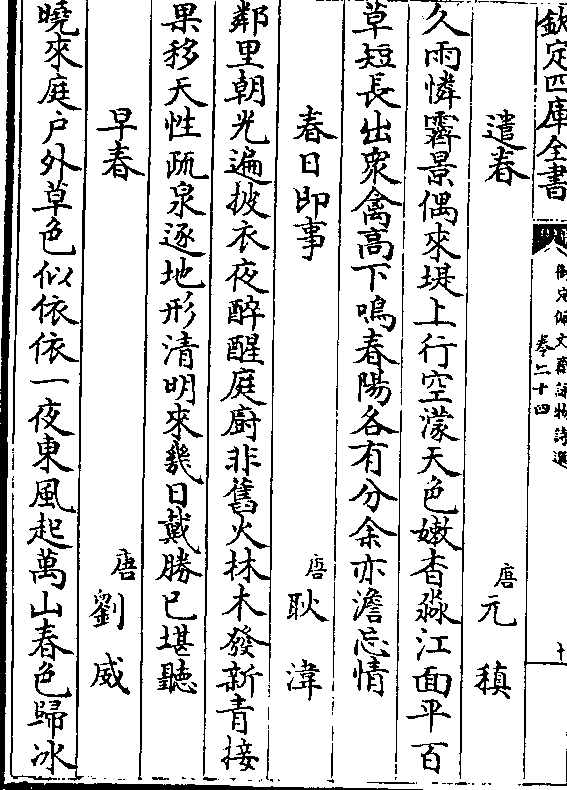 欽定四庫全書
御定佩文齋詠物詩選
卷二十四
遣春
唐元稹
久雨憐霽景偶來堤上行空濛天色嫩杳淼江面平百
草短長出衆禽高下鳴春陽各有分余亦澹忘情
春日即事
唐耿湋
鄰里朝光遍披衣夜醉醒庭廚非舊火林木發新青接
果移天性疏泉逐地形清明來幾日戴勝已堪聽
早春
唐劉威
曉來庭户外草色似依依一夜東風起萬山春色歸冰